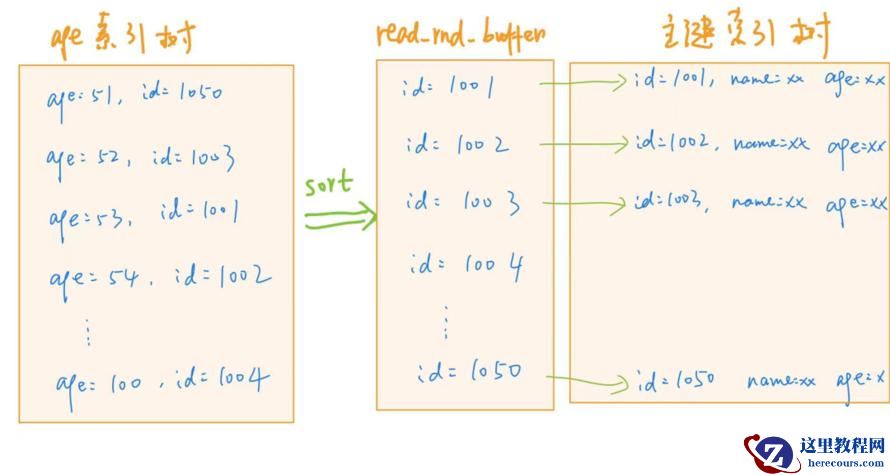 age 索引树
age=51, id=1050
age=52, id=1003
age=53, id=1001
age=54, id=1002
age=100, id=1004
sort
read_rnd_buffer
id=1001
id=1002
id=1003
id=1004
id=1050
主键索引树
id=1001, name=xx age=xx
id=1002, name=xx age=xx
id=1003, name=xx age=xx
id=1050 name=xx age=x
这里教程网
herecours.com